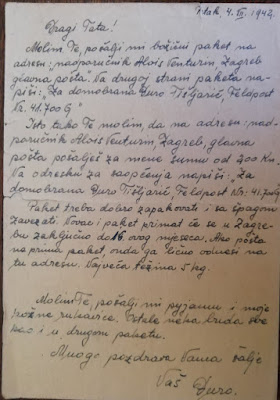 4. XII. 1942.
Dragi Tata!
Molim Te, pošalji mi božićni paket na
adresu: „nadporučnik Alois Venturin, Zagreb
glavna pošta". Na drugoj strani paketa na-
piši: „Za domobrana Đuro Tišljarić, Feldpost
Nr. 41.700 G"
Isto tako Te molim, da na adresu: nad-
poručnik Alois Venturin, Zagreb, glavna
pošta pošalješ za mene sumu od 200 Kn.
Na odresku za saopćenja napiši: „Za
domobrana Đuro Tišljarić, Feldpost Nr. 41.700G
Paket treba dobro zapakovati i sa špagom
zavezati. Novac i paket primat će se u Zagre-
bu zaključno do 16 ovog mjeseca. Ako pošta
ne prima paket, onda ga lično odnesi na
tu adresu. Najveća težina 5 kg.
Molim Te, pošalji mi pyjamu i moje
kožne rukavice. Ostalo neka bude sve
kao i u drugom paketu.
Mnogo pozdrava Vama šalje
Vaš Đuro.